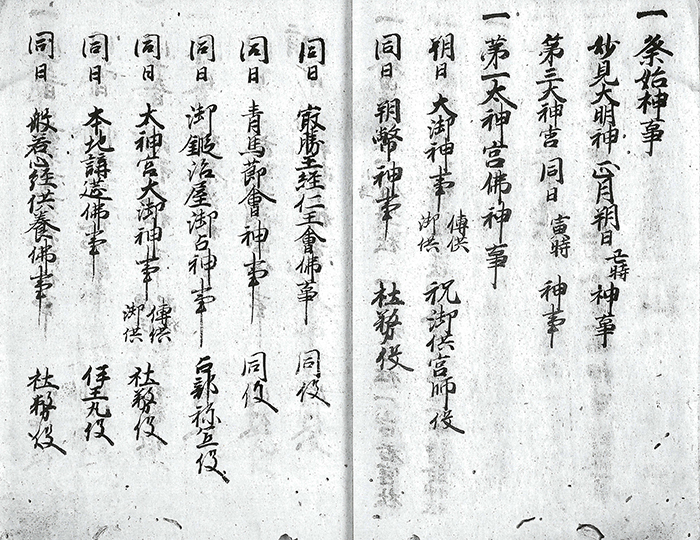 一 祭始神事
妙見大明神 正月朔日 丑時 神事
第三大神宮 同日 寅時 神事
一 第一大神宮佛神事
朔日 大御神事 傳供 御供 祝御供宮師役
同日 朔幣神事 社務役
同日 最勝王経仁王會佛事 同役
同日 青馬節會神事 同役
同日 御鍛冶屋御占神事 占部祢宜役
同日 大神宮大御神事 傳供 御供 社務役
同日 本地講佛事
同日 般若心経供養佛事 社務役